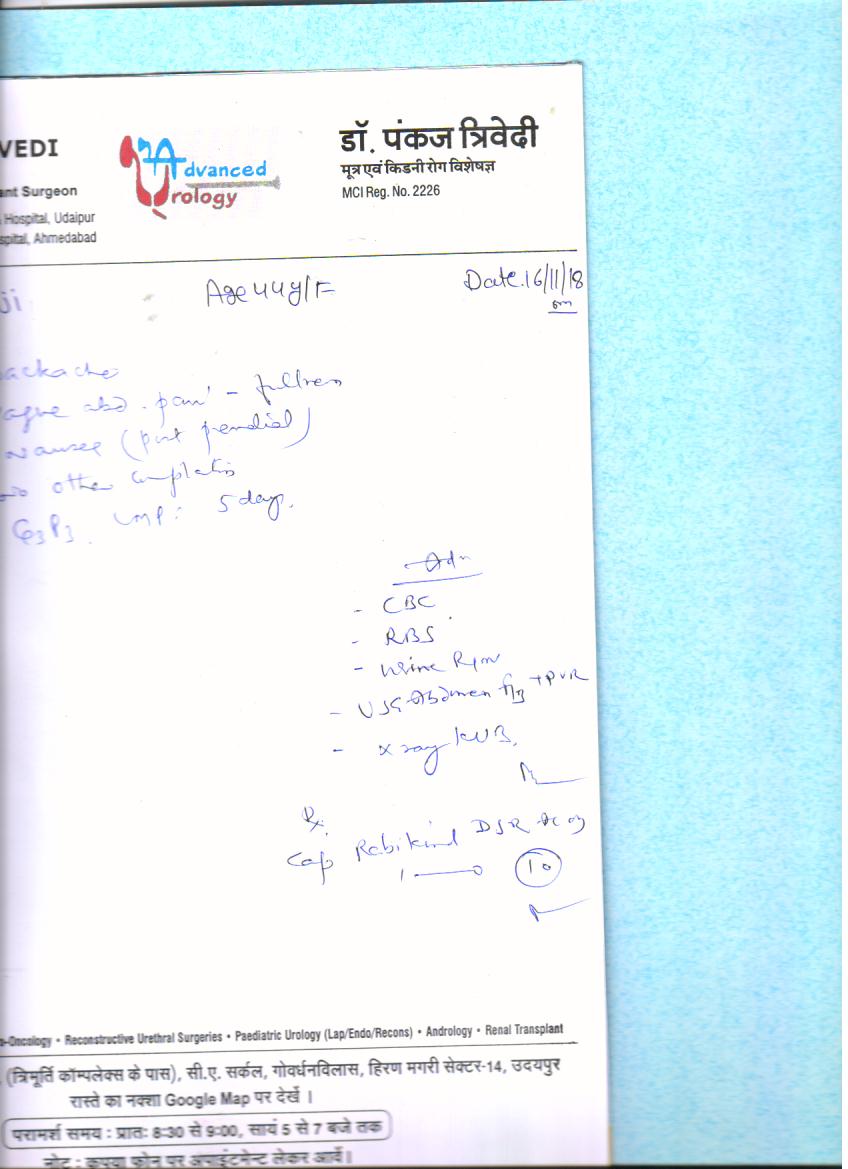 VEDI
डॉ. पंकज त्रिवेदी
मूत्र एवं किडनी रोग विशेषज्ञ
MCI Reg. No. 2226
Advanced
Urology
ant Surgeon
Hospital, Udaipur
spital, Ahmedabad
ji
Age 44y/F
Date.16/11/18
backache
vague abd. pain - fullness
nausee (post prendial)
no other complatis
G3P3. LMP: 5 days.
Adv
- CBC
- RBS
- Urine R/m
- USG Abdomen +PVR
- x ray KUB.
Rx
Cap Rabikind DSR AC
1 —— 0 10
o-Oncology • Reconstructive Urethral Surgeries • Paediatric Urology (Lap/Endo/Recons) • Andrology • Renal Transplant
(त्रिमूर्ति कॉम्पलेक्स के पास), सी.ए. सर्कल, गोवर्धनविलास, हिरण मगरी सेक्टर-14, उदयपुर
रास्ते का नक्शा Google Map पर देखें ।
परामर्श समय : प्रातः 8:30 से 9:00, सायं 5 से 7 बजे तक
नोट : कृपया फोन पर अपाइंटमेन्ट लेकर आवें।